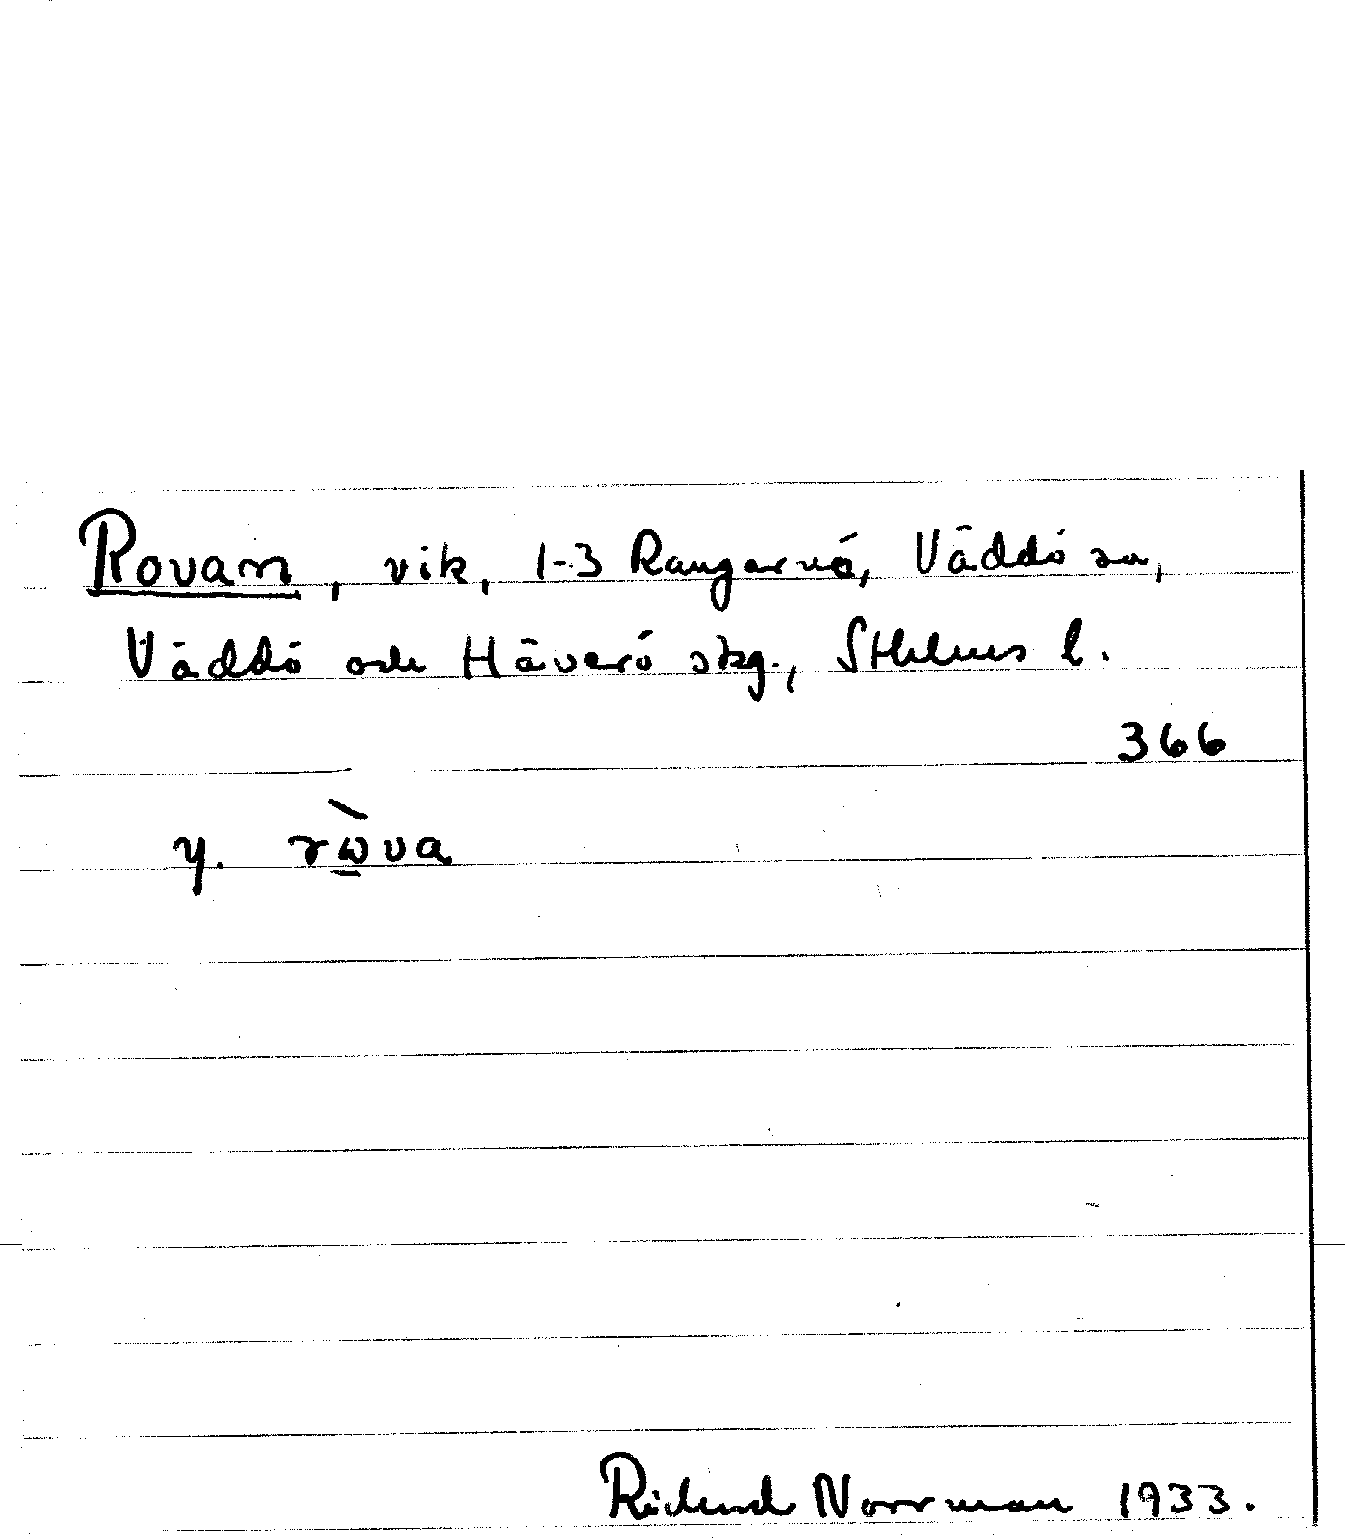 Rovarn, vik, 1-3 Rangarnö, Väddö sn,
Väddö och Häverö skg., Sthlms l.
366
y. rὼ̠va
Rickard Norrman 1933.